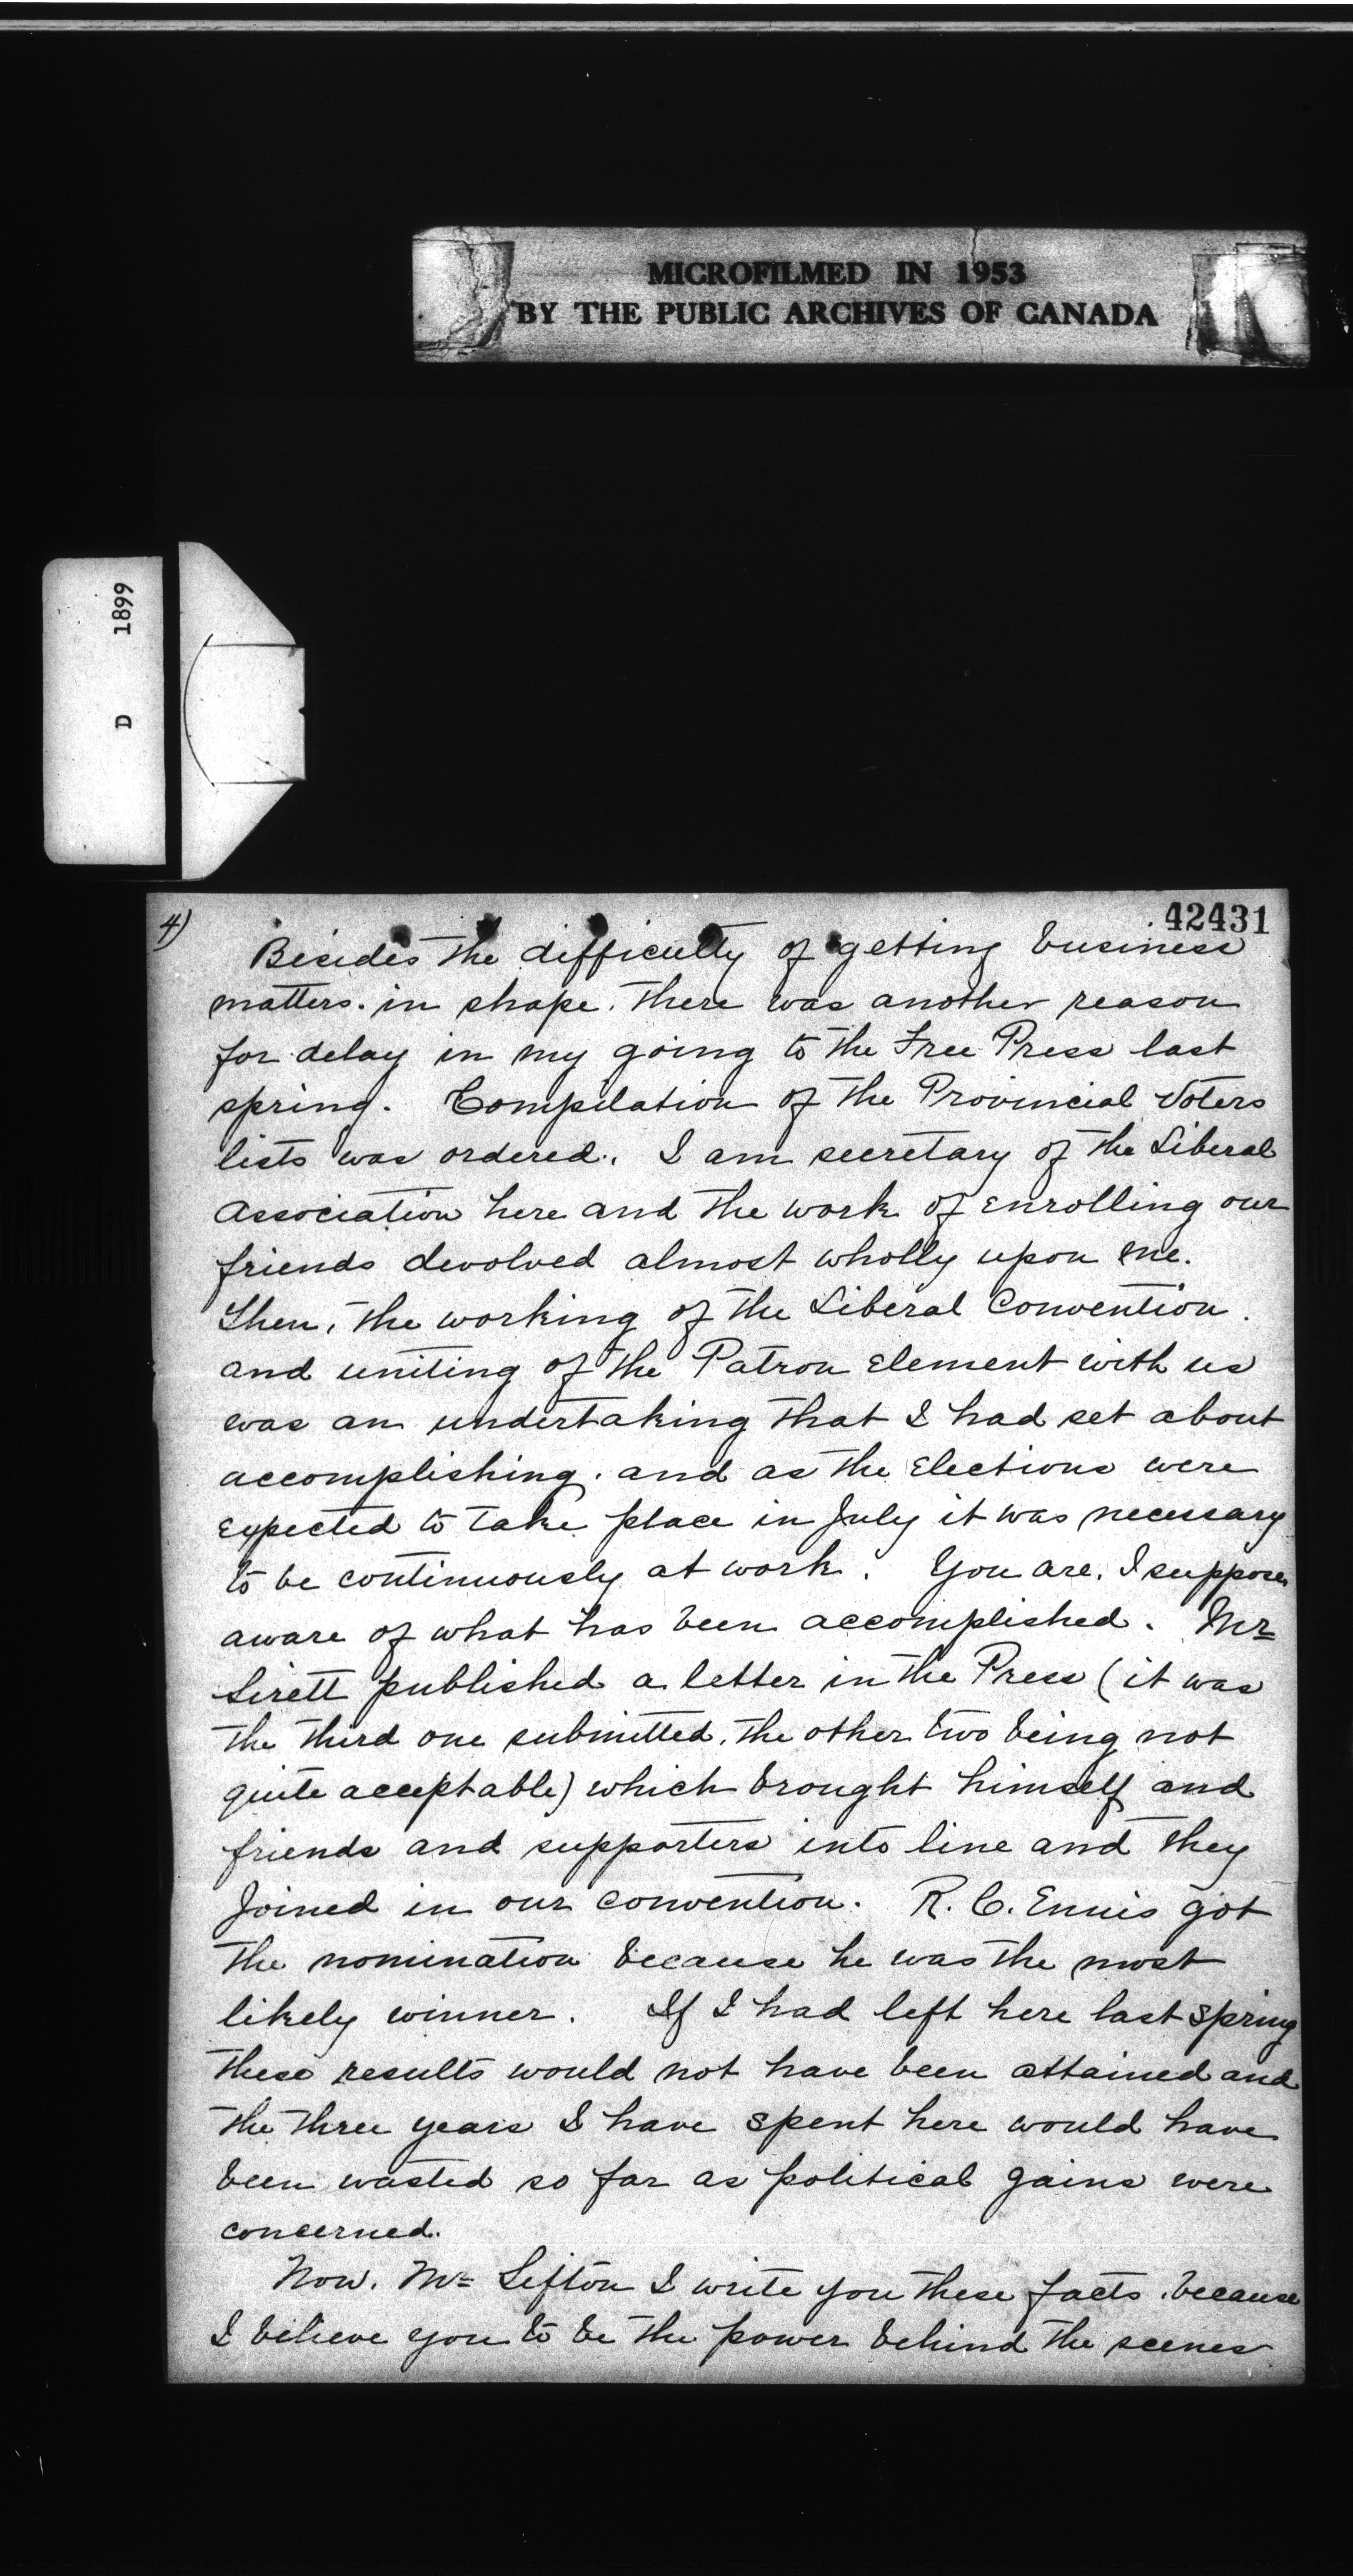 MICROFILMED IN 1953
BY THE PUBLIC ARCHIVES OF CANADA
D 1899
4)
42431
Besides the difficulty of getting business
matters in shape, there was another reason
for delay in my going to the Free Press last
spring. Compilation of the Provincial Voters
lists was ordered. I am secretary of the Liberal
Association here and the work of enrolling our
friends devolved almost wholly upon me.
Then, the working of the Liberal Convention
and uniting of the Patron element with us
was an undertaking that I had set about
accomplishing, and as the Elections were
expected to take place in July it was necessary
to be continuously at work. You are, I suppose,
aware of what has been accomplished. Mr
Sirett published a letter in the Press (it was
the third one submitted, the other two being not
quite acceptable) which brought himself and
friends and supporters into line and they
joined in our convention. R. C. Ennis got
the nomination because he was the most
likely winner. If I had left here last spring
these results would not have been attained and
the three years I have spent here would have
been wasted so far as political gains were
concerned.
Now, Mr Sifton I write you these facts, because
I believe you to be the power behind the scenes